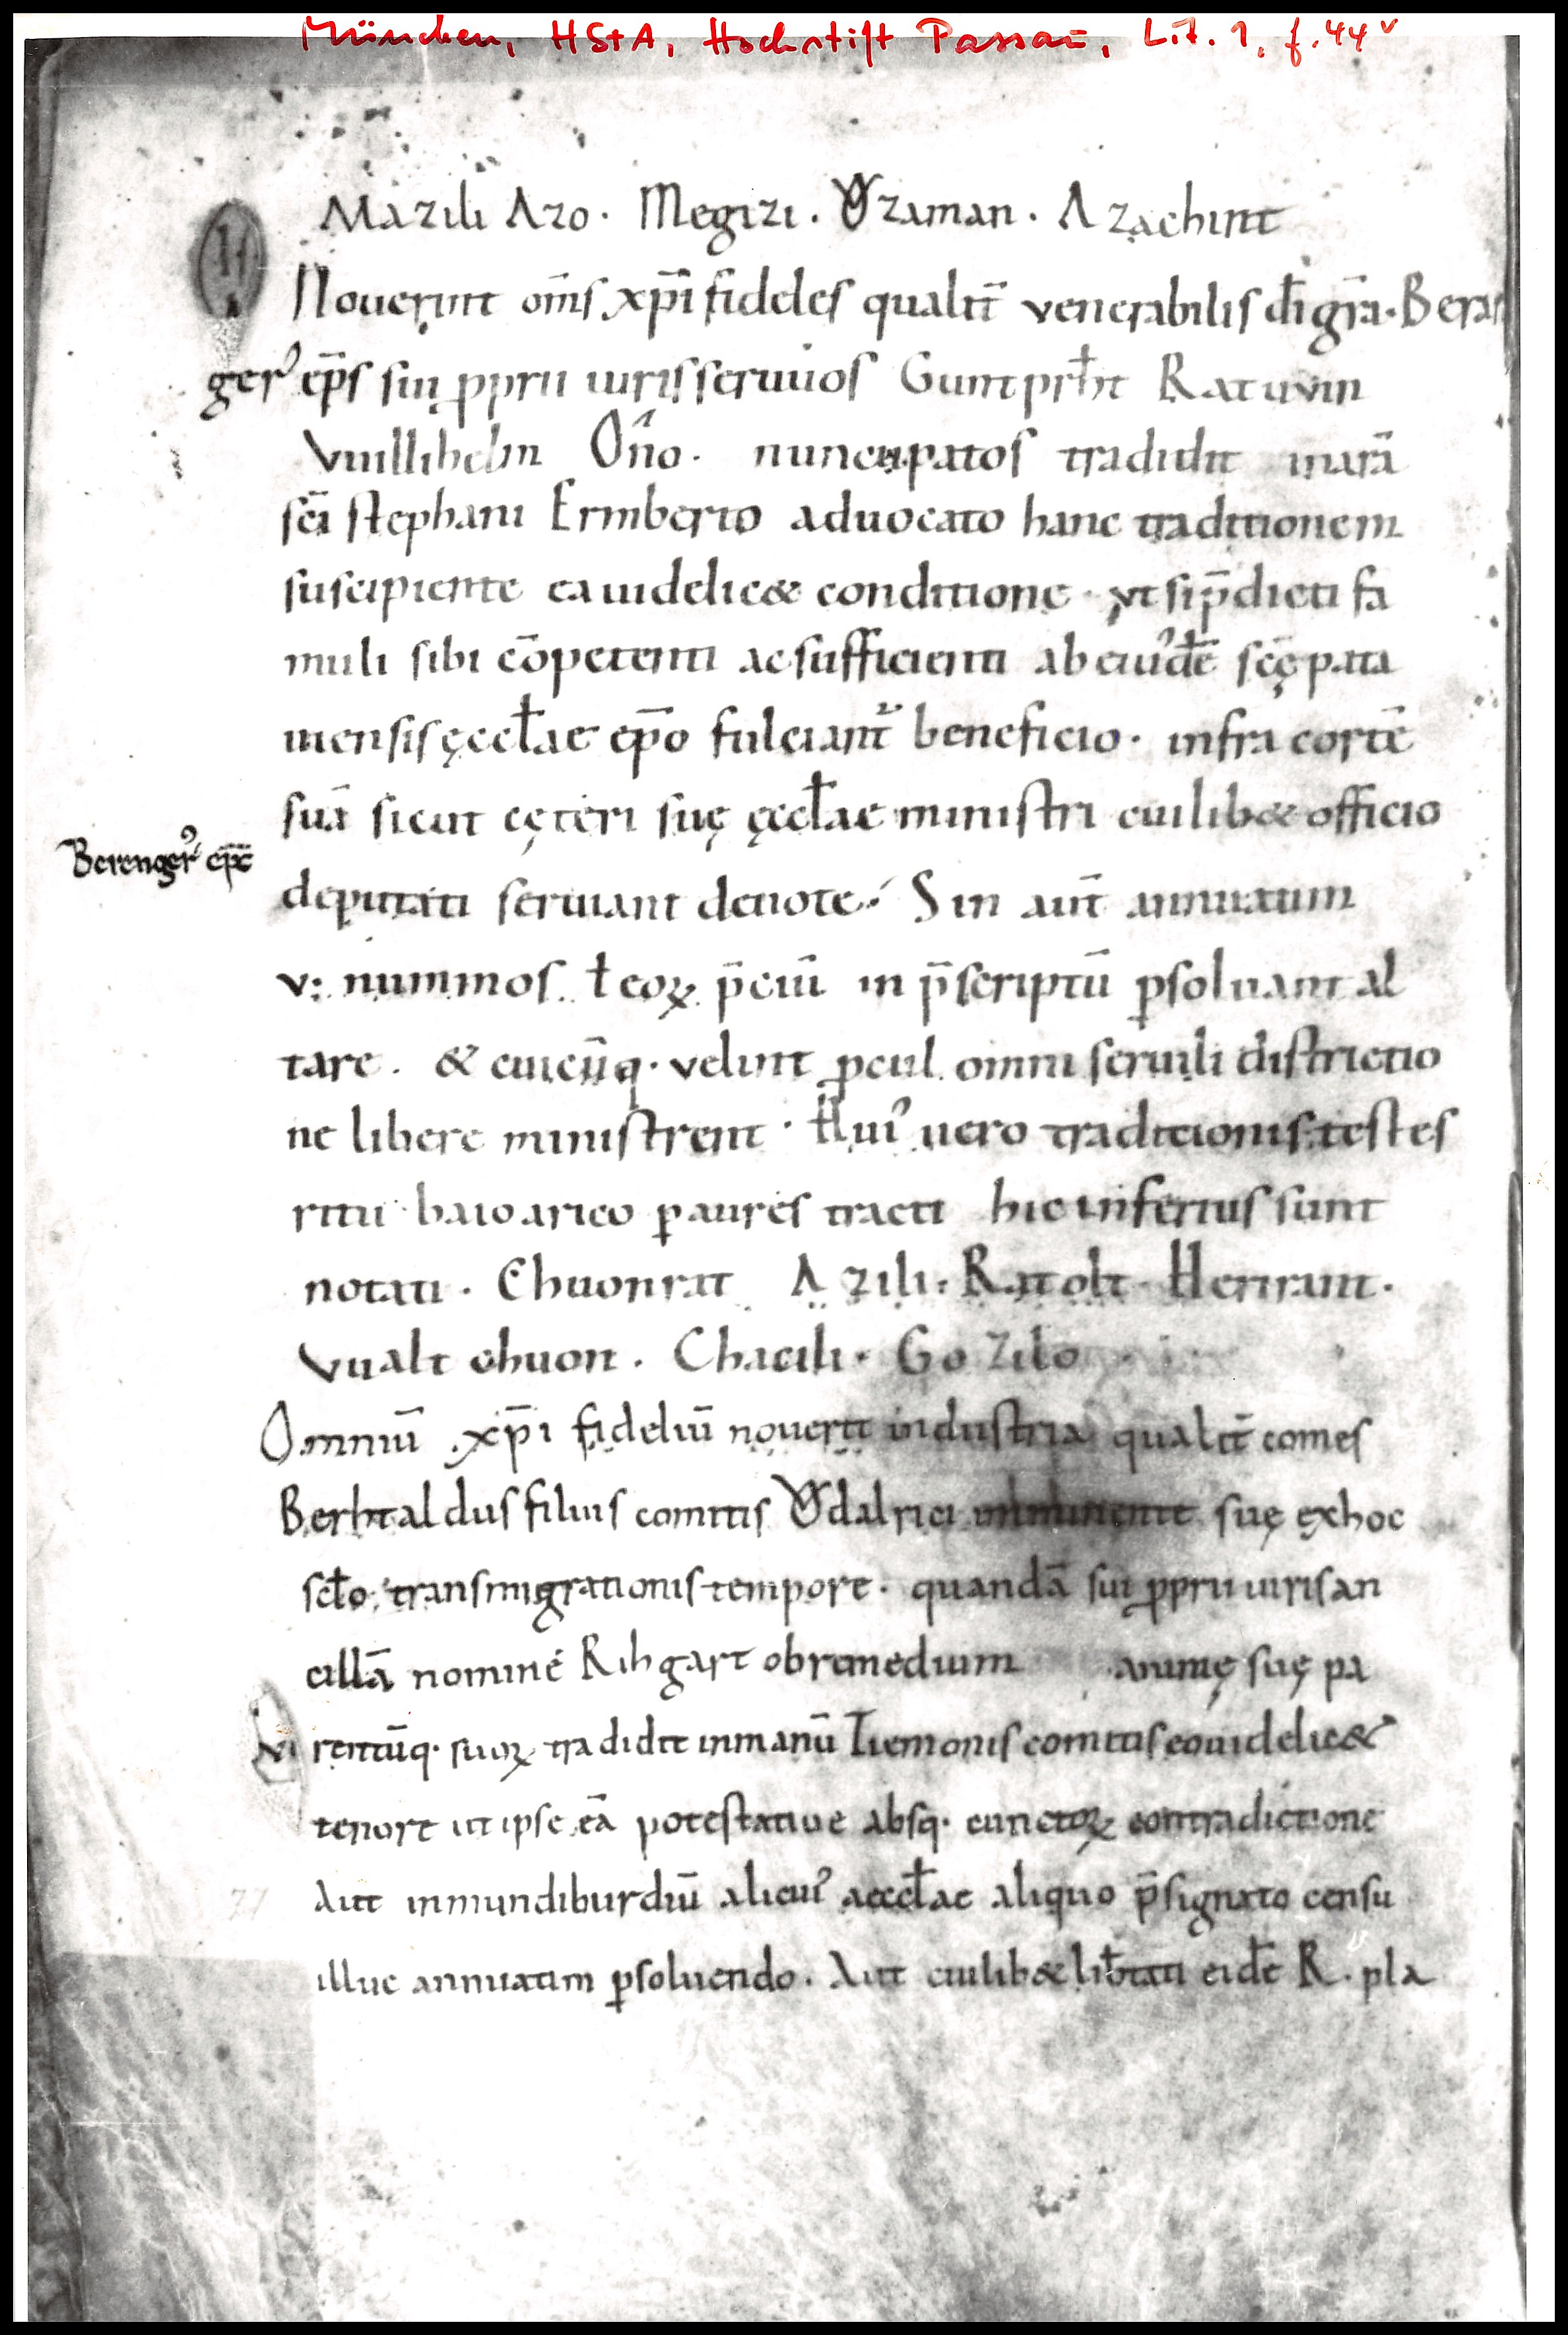 München, HStA, Hochstift Passau, Lit. 1, f. 44v
Mazili Azo. Megizi. Ǒzaman. Azachint
Nouerint om̄s xp̄i fideles qualit̄ venerabilis dī gr̄a. Beran
gerꝰ ep̄s sui ꝓprii iuris seruuos Guntprħt Ratuuin
VVillihelm nuncupatos tradidit in arā
sc̄i stephani Ermberto aduocato hanc traditionem
suscipiente ea uidelic& conditione vt si p̄dicti fa
muli sibi cōpetenti ac sufficienti ab eiuꝰdē sc̄ę pata
uiensis ęccłae ep̄o fulciant᷑ beneficio. infra cortē
suā sicut cęteri suę ęccłae ministri cuilib& officio
Berengerꝰ ep̄c
deputati seruiant deuote. Sin aut̄ annuatim
v: nummos ł eoꝝ p̄ciū in p̄scriptū ꝑsoluant al
tare. & cuicūq. velint ꝓcul omni seruili districtio
ne libere ministrent. Huiꝰ uero traditionis testes
ritu baioarico ꝑ aures tracti hic inferius sunt
notati. Chuonrat Azili. Ratolt. Herirant.
VValtchuon. Chacili. Gozilo
Omniū xp̄i fideliū nouerit industria qualit̄ comes
Berhtaldus filius comitis Ǒdalrici imminente suę ex hoc
scło transmigrationis tempore. quandā sui ꝓprii iuris an
cillā nomine Rihgart ob remedium animę suę pa
rentūq. suoꝝ tradidit in manū Tiemonis comitis eo uidelic&
tenore ut ipse eā potestatiue absq. cunctoꝝ contradictione
Aut in mundiburdiū alicuiꝰ aeccłae aliquo p̄signato censu
illuc annuatim ꝑsoluendo. Aut cuilib& lib̄tati eidē R. pla